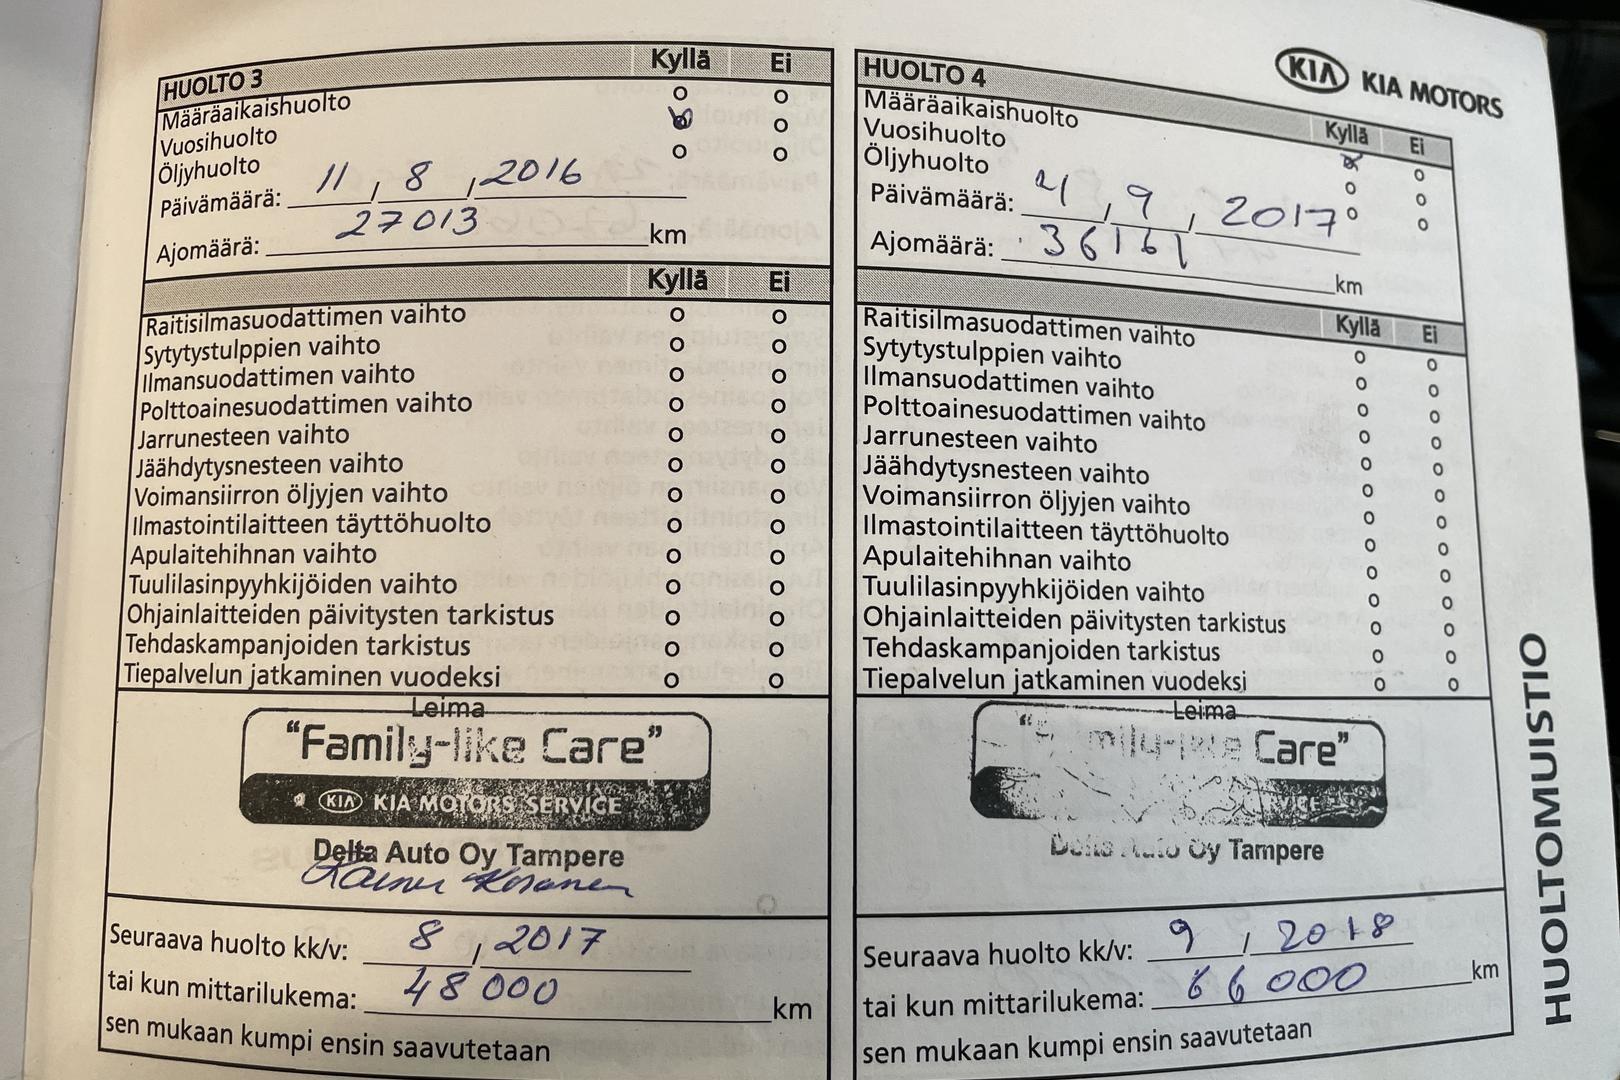 HUOLTO 3 Kyllä Ei
Määräaikaishuolto o o
Vuosihuolto o
Öljyhuolto o o
Päivämäärä: 11 , 8 , 2016
Ajomäärä: 27013 km
Kyllä Ei
Raitisilmasuodattimen vaihto o o
Sytytystulppien vaihto o o
Ilmansuodattimen vaihto o o
Polttoainesuodattimen vaihto o o
Jarrunesteen vaihto o o
Jäähdytysnesteen vaihto o o
Voimansiirron öljyjen vaihto o o
Ilmastointilaitteen täyttöhuolto o o
Apulaitehihnan vaihto o o
Tuulilasinpyyhkijöiden vaihto o o
Ohjainlaitteiden päivitysten tarkistus o o
Tehdaskampanjoiden tarkistus o o
Tiepalvelun jatkaminen vuodeksi o o
Leima
"Family-like Care"
KIA KIA MOTORS SERVICE
Delta Auto Oy Tampere
Seuraava huolto kk/v: 8 , 2017
tai kun mittarilukema: 48 000 km
sen mukaan kumpi ensin saavutetaan
KIA KIA MOTORS
HUOLTO 4 Kyllä Ei
Määräaikaishuolto o
Vuosihuolto o o
Öljyhuolto o o
Päivämäärä: , 9 , 2017
Ajomäärä: 36161 km
Kyllä Ei
Raitisilmasuodattimen vaihto o o
Sytytystulppien vaihto o o
Ilmansuodattimen vaihto o o
Polttoainesuodattimen vaihto o o
Jarrunesteen vaihto o o
Jäähdytysnesteen vaihto o o
Voimansiirron öljyjen vaihto o o
Ilmastointilaitteen täyttöhuolto o o
Apulaitehihnan vaihto o o
Tuulilasinpyyhkijöiden vaihto o o
Ohjainlaitteiden päivitysten tarkistus o o
Tehdaskampanjoiden tarkistus o o
Tiepalvelun jatkaminen vuodeksi o o
Leima
Care"
Oy Tampere
Seuraava huolto kk/v: 9 / 2018
tai kun mittarilukema: 66 000 km
sen mukaan kumpi ensin saavutetaan
HUOLTOMUISTIO